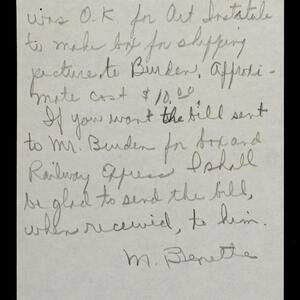 was O.K. for Art Institute
to make box for shipping
picture to Burden. Approxi-
mate cost $10.00.
If you want the bill sent
to Mr. Burden for box and
Railway Express I shall
be glad to send the bill,
when received, to him.
M. Benette